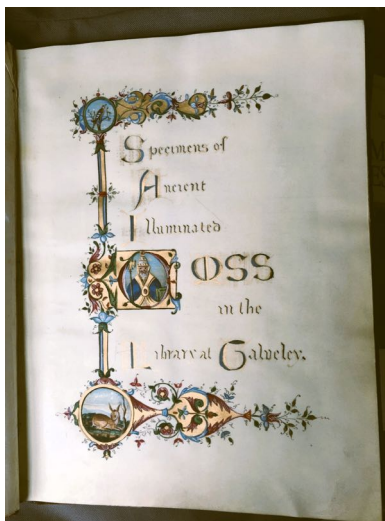 Specimens of
Ancient
Illuminated
MSS
in the
Library at Calveley.